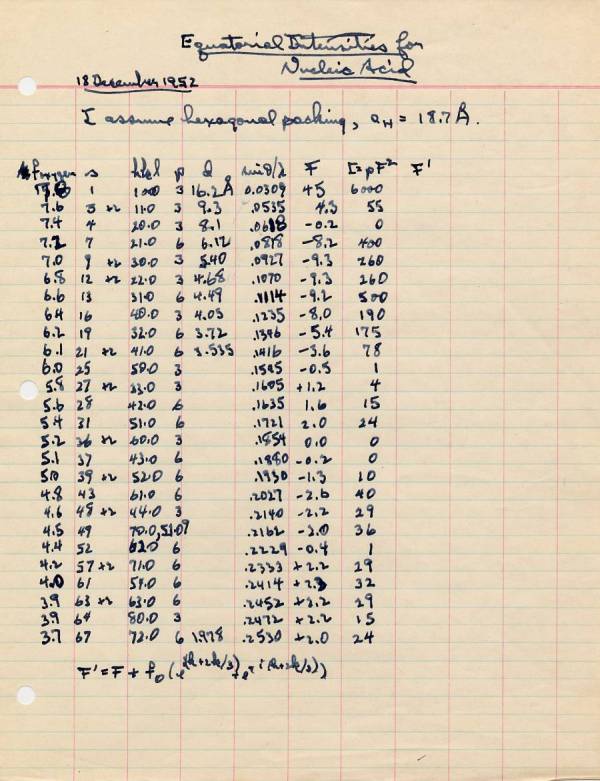 Equatorial Intensities for
Nucleic Acid
18 December 1952
I assume hexagonal packing, aH = 18.7 Å.
f oxygen s hk.l p d sinθ/λ F I=pF² F'
1 10.0 3 16.2 Å 0.0309 45 6000
7.6 3 *2 11.0 3 9.3 .0535 4.3 55
7.4 4 20.0 3 8.1 .0618 -0.2 0
7.2 7 21.0 6 6.12 .0818 -8.2 400
7.0 9 *2 30.0 3 5.40 .0927 -9.3 260
6.8 12 *2 22.0 3 4.68 .1070 -9.3 260
6.6 13 31.0 6 4.49 .1114 -9.2 500
6.4 16 40.0 3 4.05 .1235 -8.0 190
6.2 19 32.0 6 3.72 .1346 -5.4 175
6.1 21 *2 41.0 6 3.535 .1416 -3.6 78
6.0 25 50.0 3 .1545 -0.5 1
5.8 27 *2 33.0 3 .1605 +1.2 4
5.6 28 42.0 6 .1635 1.6 15
5.4 31 51.0 6 .1721 2.0 24
5.2 36 *2 60.0 3 .1854 0.0 0
5.1 37 43.0 6 .1880 -0.2 0
5.0 39 *2 52.0 6 .1930 -1.3 10
4.8 43 61.0 6 .2027 -2.6 40
4.6 48 *2 44.0 3 .2140 -2.2 29
4.5 49 70.0, .2162 -2.0 36
4.4 52 62.0 6 .2229 -0.4 1
4.2 57 *2 71.0 6 .2333 +2.2 29
4.0 61 54.0 6 .2414 +2.3 32
3.9 63 *2 63.0 6 .2452 +2.2 29
3.9 64 80.0 3 .2472 +2.2 15
3.7 67 72.0 6 1.978 .2530 +2.0 24
F' = F + f₀ (e^i(h+2k/3) + e^-i(h+2k/3))